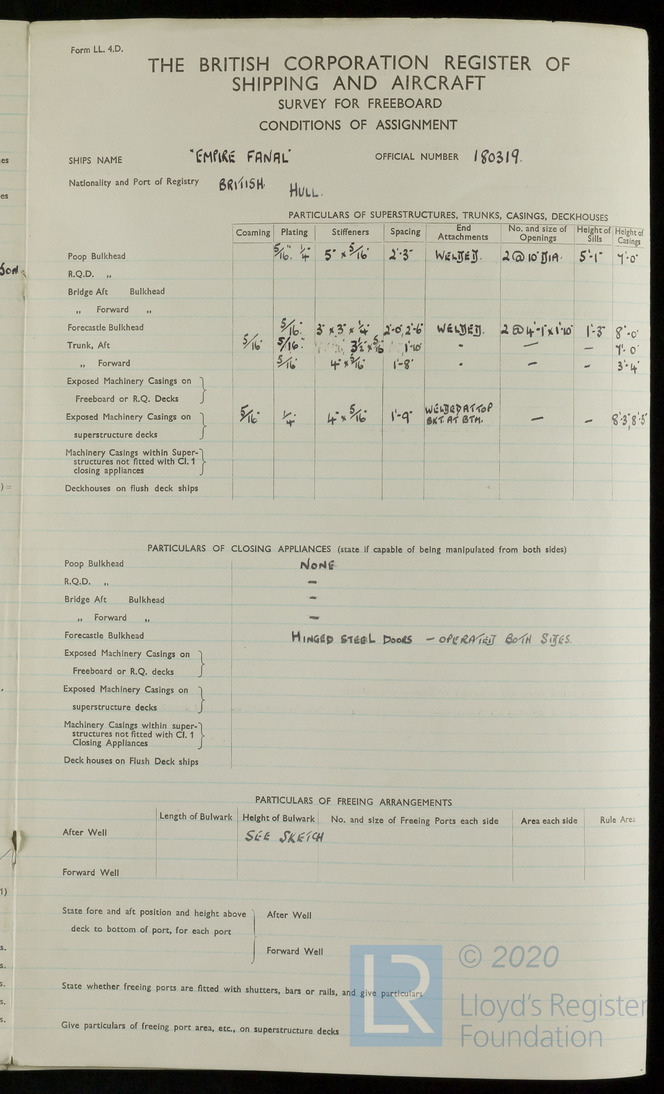 Form LL. 4.D.
THE BRITISH CORPORATION REGISTER OF
SHIPPING AND AIRCRAFT
SURVEY FOR FREEBOARD
CONDITIONS OF ASSIGNMENT
SHIPS NAME "EMPIRE FANAL" OFFICIAL NUMBER 180319.
Nationality and Port of Registry BRITISH. HULL.
PARTICULARS OF SUPERSTRUCTURES, TRUNKS, CASINGS, DECKHOUSES
Coaming Plating Stiffeners Spacing End Attachments No. and size of Openings Height of Sills Height of Casings
Poop Bulkhead 5/16" 1/4" 5" x 5/16" 2'-3" WELDED. 2 @ 10" DIA. 5'-1" 7'-0"
R.Q.D. „
Bridge Aft Bulkhead
„ Forward „
Forecastle Bulkhead 5/16" 3" x 3" x 1/4" 2'-0", 2'-6" WELDED. 2 @ 4'-1" x 1'10" 1'-3" 8'-0"
Trunk, Aft 5/16" 5/16" 3½" x 5/16 1'-10" - — – 7'-0"
„ Forward 5/16" 4" x 5/16" 1'-8" - – – 3'-4"
Exposed Machinery Casings on
Freeboard or R.Q. Decks
Exposed Machinery Casings on 5/16" 1/4" 4" x 5/16" 1'-9" WELDED AT TOP BKT. AT BTM. — – 8'-3", 8'-5"
superstructure decks
Machinery Casings within Super-
structures not fitted with Cl. 1
closing appliances
Deckhouses on flush deck ships
PARTICULARS OF CLOSING APPLIANCES (state if capable of being manipulated from both sides)
Poop Bulkhead NONE
R.Q.D. „ –
Bridge Aft Bulkhead –
„ Forward „ –
Forecastle Bulkhead HINGED STEEL DOORS – OPERATED BOTH SIDES.
Exposed Machinery Casings on
Freeboard or R.Q. decks
Exposed Machinery Casings on
superstructure decks
Machinery Casings within super-
structures not fitted with Cl. 1
Closing Appliances
Deck houses on Flush Deck ships
PARTICULARS OF FREEING ARRANGEMENTS
Length of Bulwark Height of Bulwark No. and size of Freeing Ports each side Area each side Rule Area
After Well SEE SKETCH
Forward Well
State fore and aft position and height above After Well
deck to bottom of port, for each port
Forward Well
State whether freeing ports are fitted with shutters, bars or rails, and give particulars
Give particulars of freeing port area, etc., on superstructure decks
LR © 2020
Lloyd's Register
Foundation